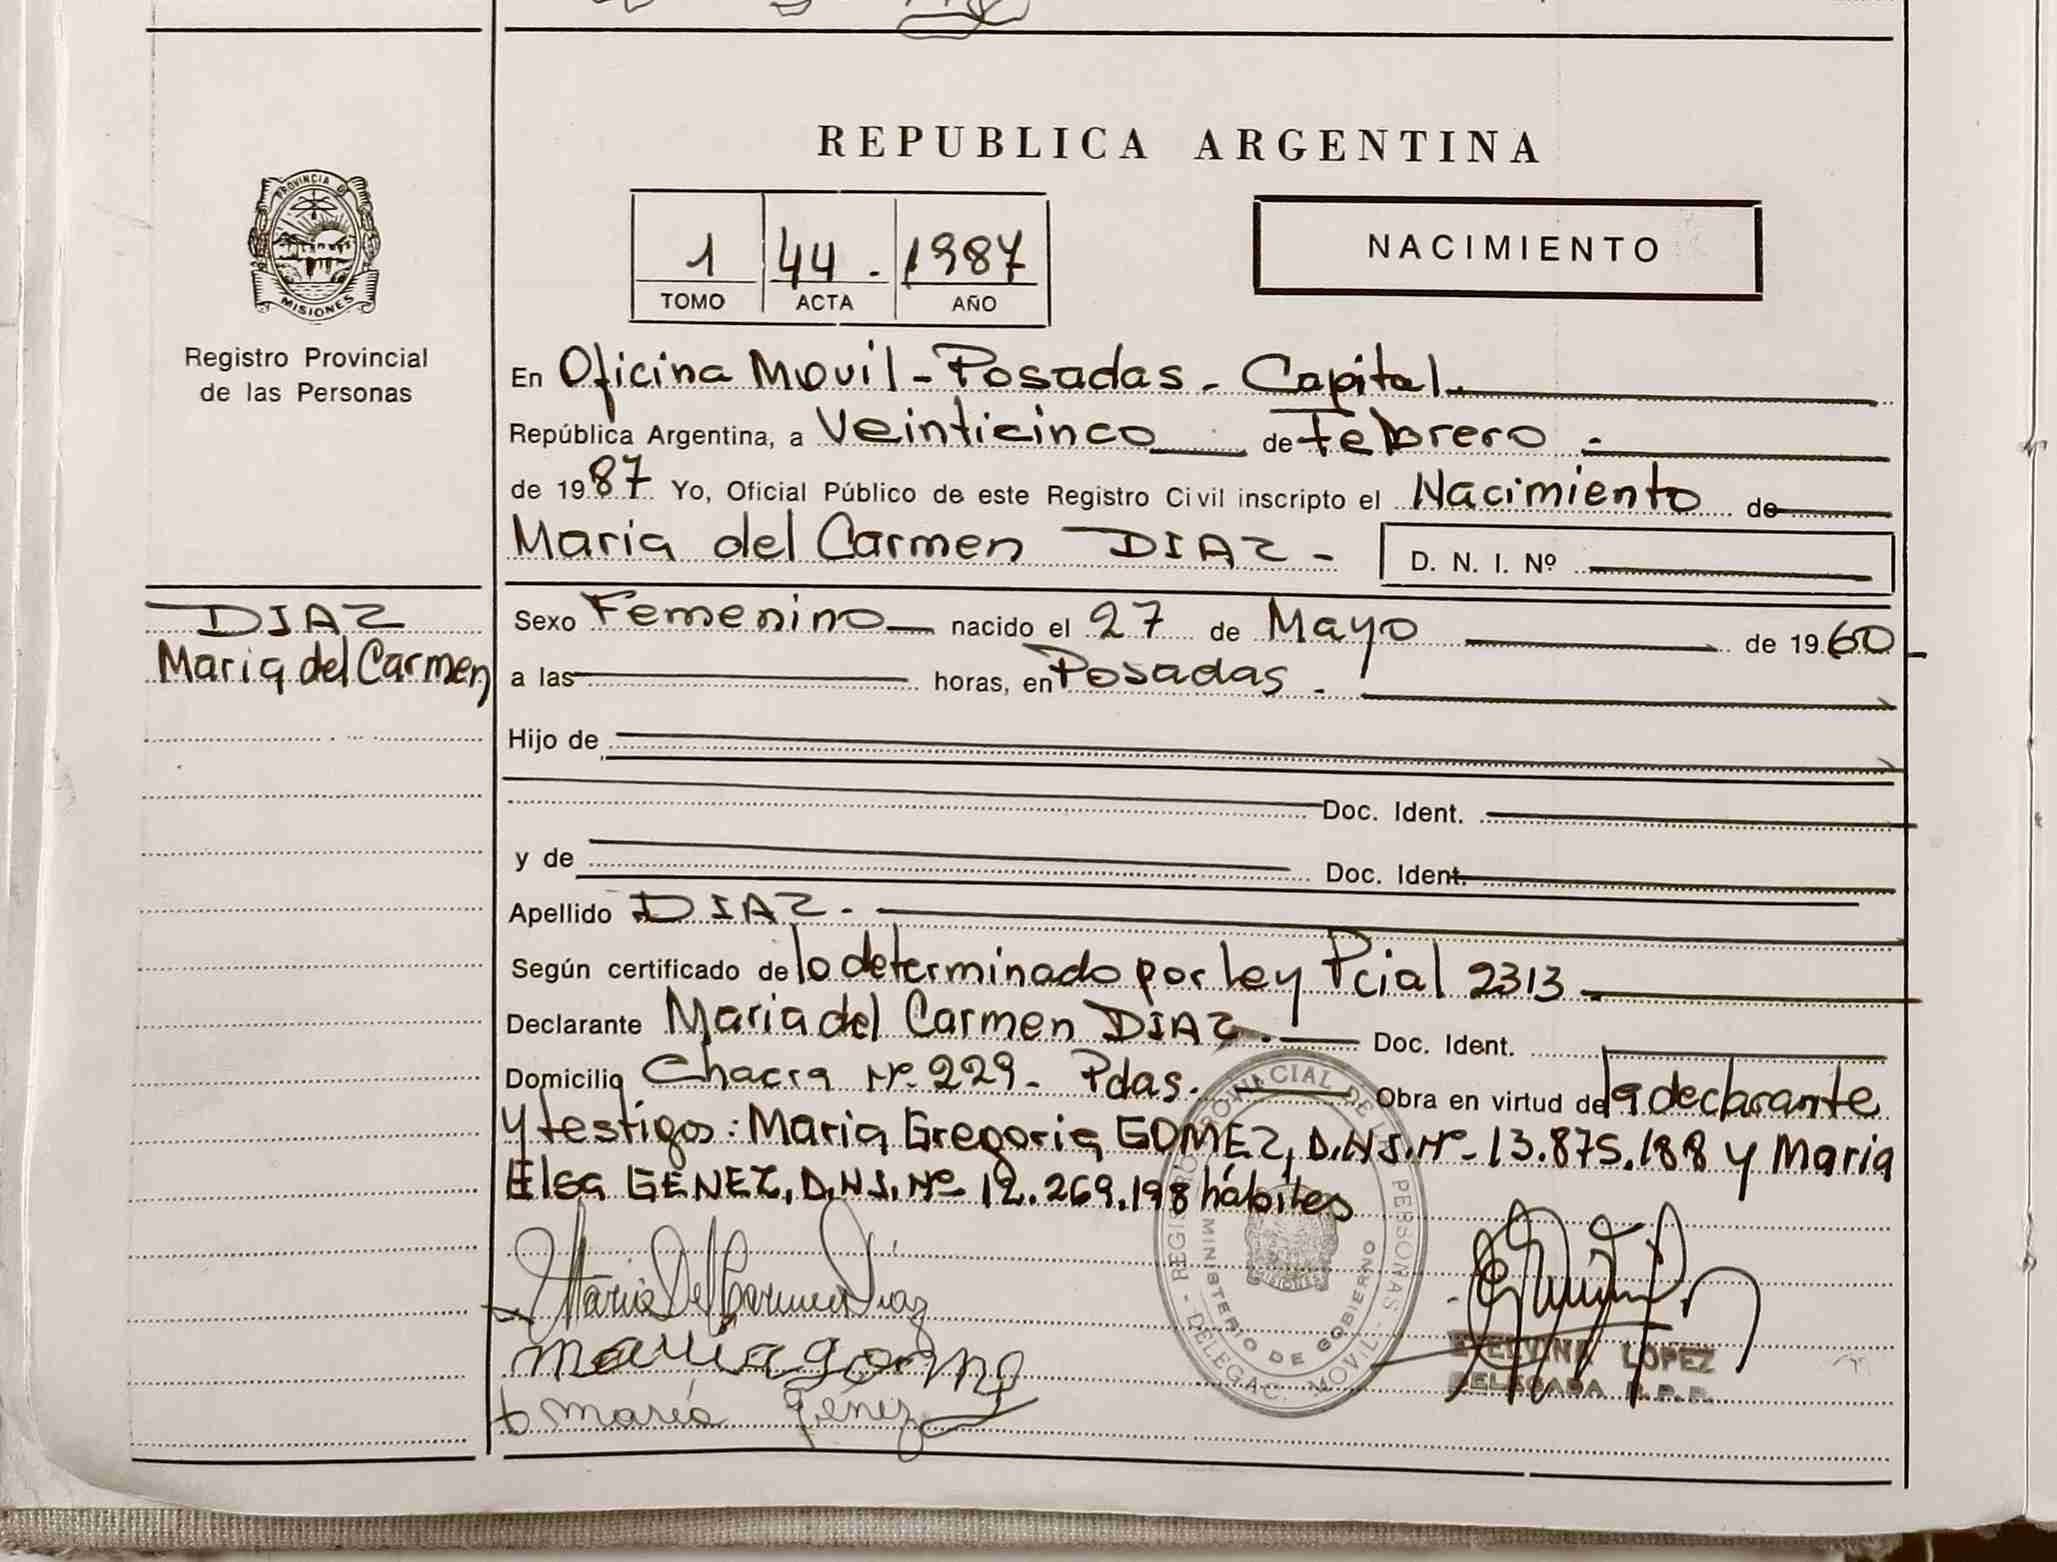 REPUBLICA ARGENTINA
PROVINCIA DE
MISIONES
Registro Provincial
de las Personas
1 44 . 1987
TOMO ACTA AÑO
NACIMIENTO
En Oficina Movil - Posadas - Capital.
República Argentina, a Veinticinco de Febrero .
de 1987 Yo, Oficial Público de este Registro Civil inscripto el Nacimiento de
Maria del Carmen DIAZ -
D. N. I. Nº
DIAZ
Maria del Carmen
Sexo Femenino nacido el 27 de Mayo de 1960
a las horas, en Posadas .
Hijo de
Doc. Ident.
y de Doc. Ident.
Apellido DIAZ.
Según certificado de lo determinado por ley Pcial 2313
Declarante Maria del Carmen DIAZ. Doc. Ident.
Domicilio Chacra Nº 229- Pdas. Obra en virtud de la declarante
y testigos: Maria Gregoria GOMEZ, D.N.I. Nº 13.875.188 y Maria
Elsa GENEZ, D.N.I. Nº 12.269.198 hábiles
Maria Del Carmen Diaz
maria gomez
maría génez
REGISTRO PROVINCIAL DE LAS PERSONAS - DELEGAC. MOVIL -
MINISTERIO DE GOBIERNO
MISIONES
LOPEZ
DELEGADA R.P.P.